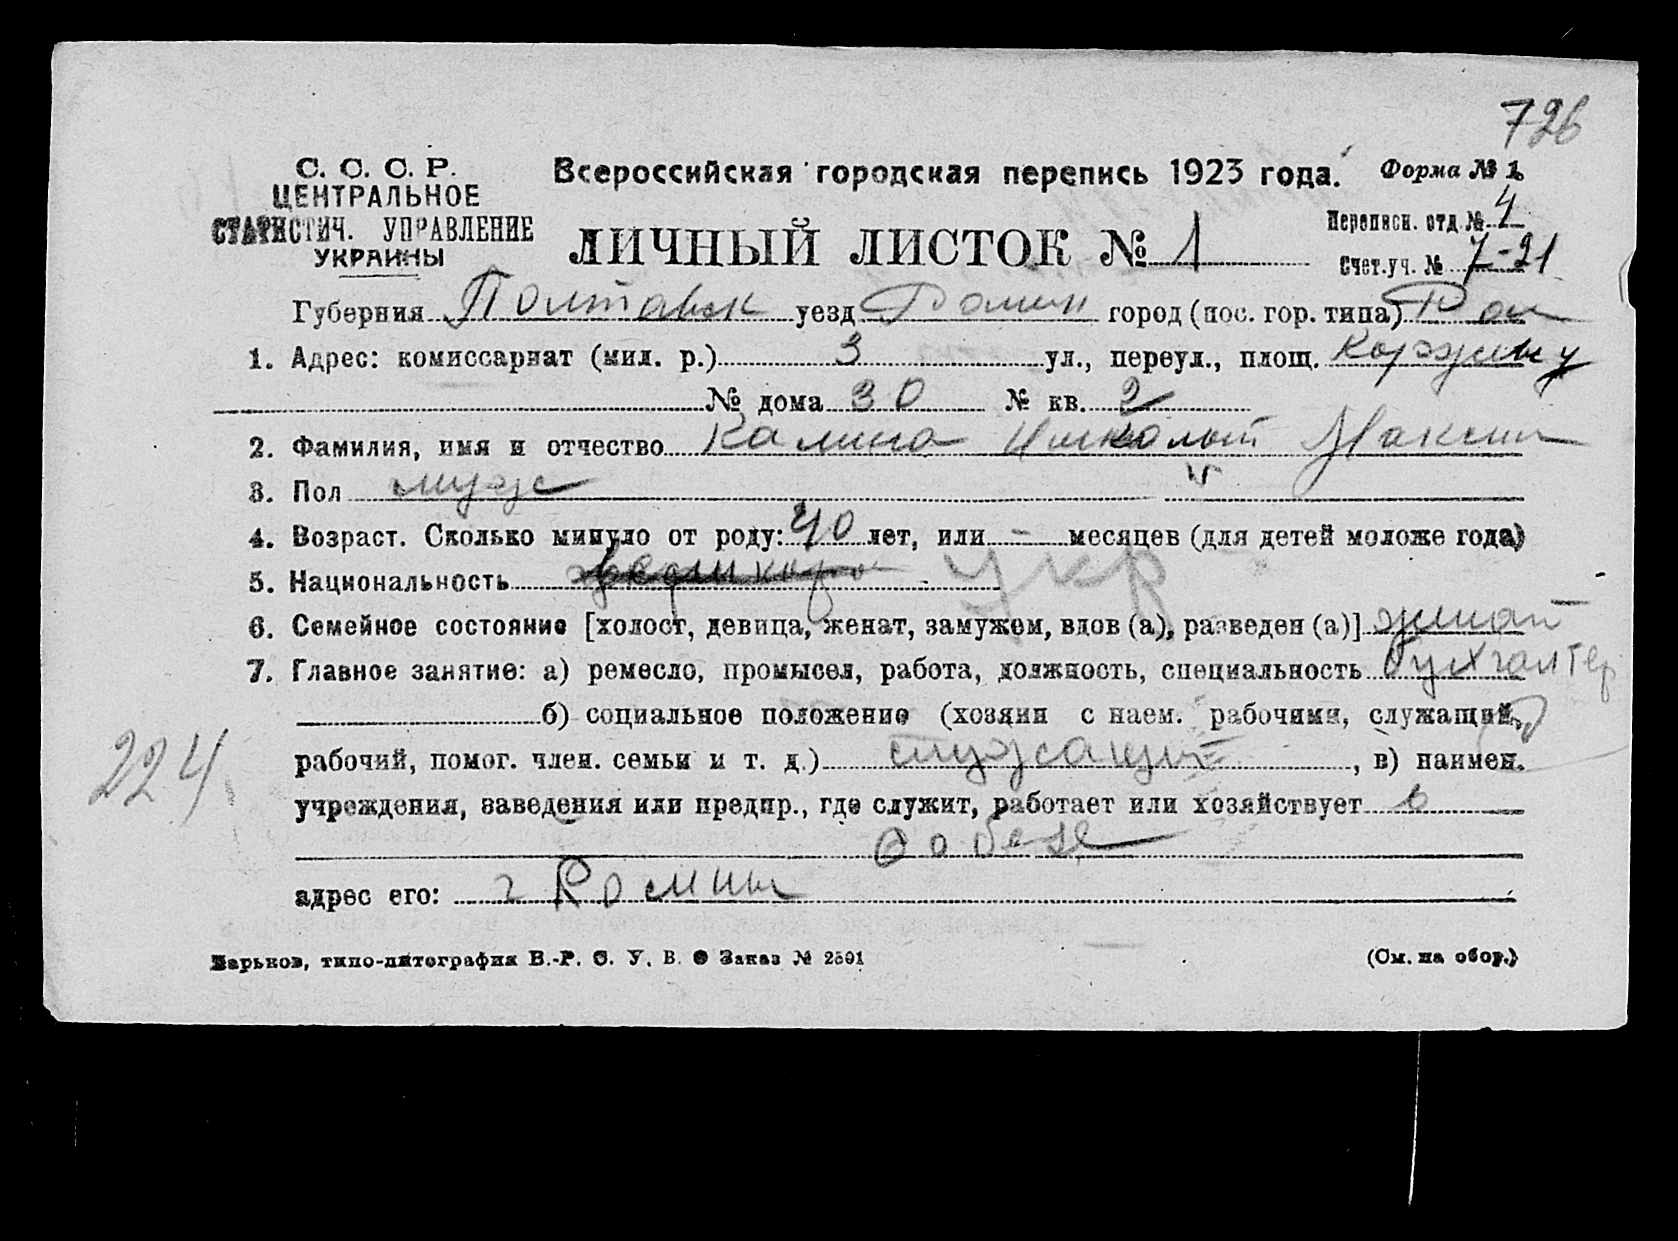 726
С. С. С. Р.
ЦЕНТРАЛЬНОЕ
СТАТИСТИЧ. УПРАВЛЕНИЕ
УКРАИНЫ
Всероссийская городская перепись 1923 года. Форма № 1.
ЛИЧНЫЙ ЛИСТОК № 1
Переписн. отд. № 4
Счет. уч. № 7-21
Губерния Полтавск уезд Ромен город (пос. гор. типа) Ром
1. Адрес: комиссариат (мил. р.) 3 ул., переул., площ.
№ дома 30 № кв. 2
2. Фамилия, имя и отчество Калина Николай Максим
3. Пол мужс
4. Возраст. Сколько минуло от роду: 40 лет, или - месяцев (для детей моложе года)
5. Национальность укр
6. Семейное состояние [холост, девица, женат, замужем, вдов (а), разведен (а)] женат
7. Главное занятие: а) ремесло, промысел, работа, должность, специальность бухгалтер
б) социальное положение (хозяин с наем. рабочими, служащий,
224
рабочий, помог. член. семьи и т. д.) служащий, в) наимен.
учреждения, заведения или предпр., где служит, работает или хозяйствует в
собезе
адрес его: г Ромны
Харьков, типо-литография В.-Р. С. У. В. О Заказ № 2591 (См. на обор.)